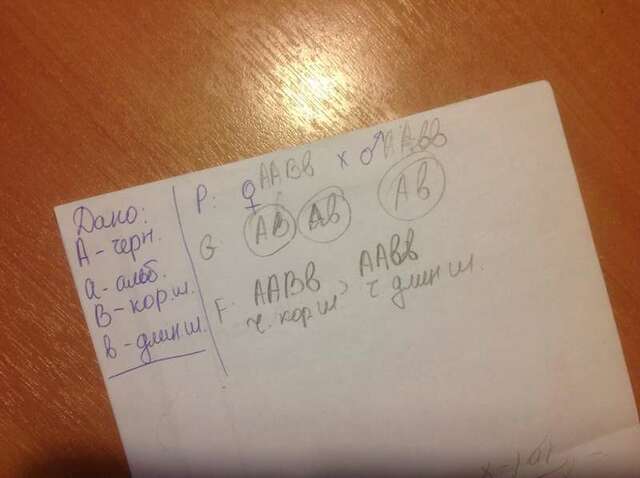 Дано:
А - черн.
а - альб.
В - кор ш.
в - длин ш.
Р: ♀ ААВв х ♂ ААвв
G АВ Ав Ав
F: ААВв, ААвв
ч. кор ш ч длин ш.